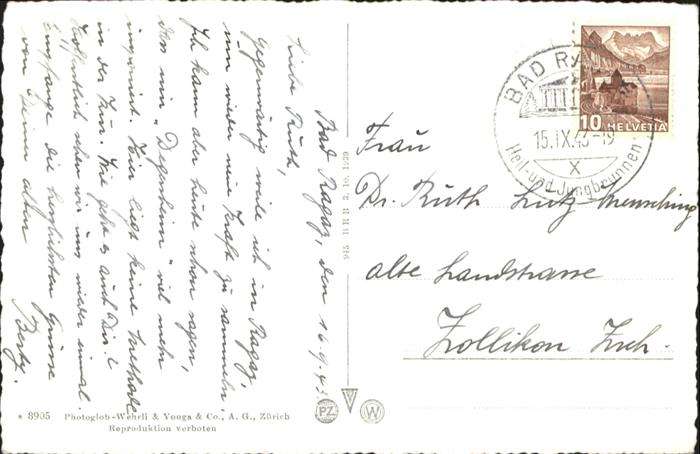 Bad Ragaz, den 16.9.43
Liebe Ruth,
Gegenwärtig weile ich in Ragaz,
um wieder neue Kraft zu sammeln.
Ich kann aber heute schon sagen,
dass mir "Degersheim" viel mehr
imponiert. Hier liegt keine Methode
in der Kur. Wie geht es auch Dir?
Hoffentlich sehen wir uns wieder einmal.
Empfange die herzlichsten Grüsse
von Deiner alten
Berty.
945 H H B 2. 10. 1939
BAD RAGAZ
15.IX.43-19
X
Heil- und Jungbrunnen
10 HELVETIA
Frau
Dr. Ruth Lutz-Mensching
alte Landstrasse
Zollikon Zch.
* 8905 Photoglob-Wehrli & Vouga & Co., A. G., Zürich
Reproduktion verboten
PZ
W